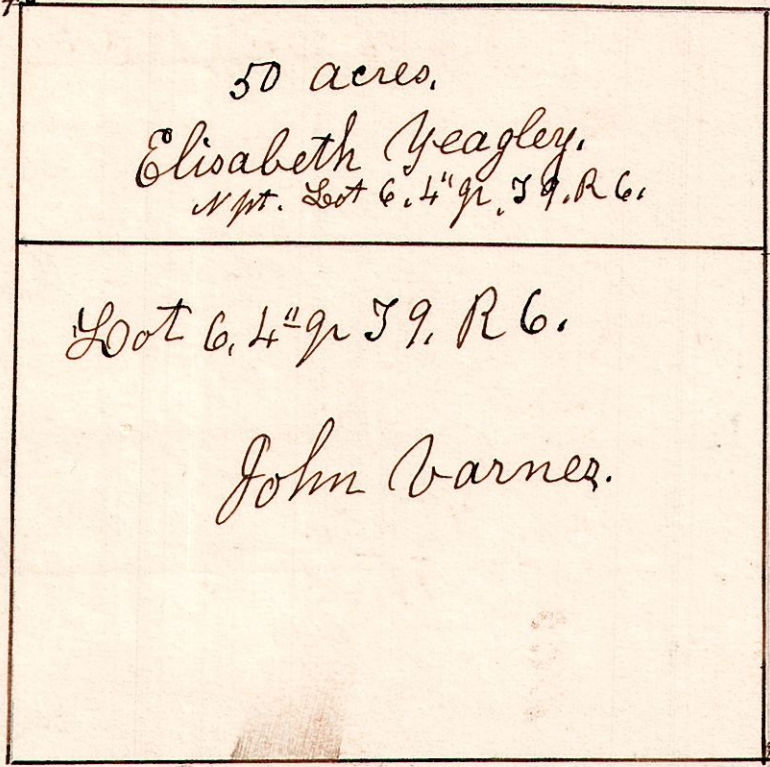 50 acres.
Elisabeth Yeagley.
N pt. Lot 6. 4" qr. T 9. R 6.
Lot 6. 4" qr T 9. R 6.
John Varner.